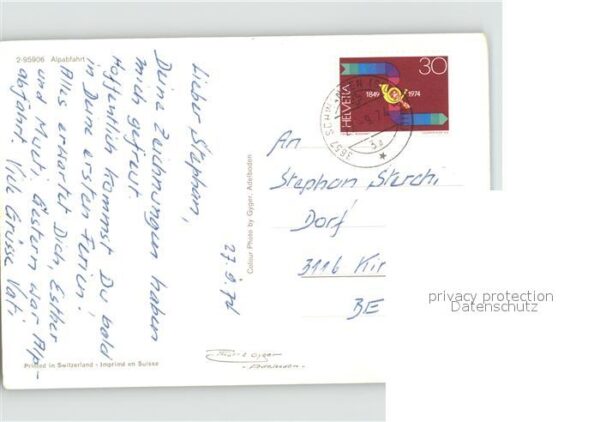 2-95906 Alpabfahrt
27.9.74
Lieber Stephan,
Deine Zeichnungen haben
mich gefreut.
Hoffentlich kommst Du bald
in Deine ersten Ferien!
Alles erwartet Dich, Esther
und Mueti. Gestern war Alp-
abfahrt. Viele Grüsse Vati
Printed in Switzerland - Imprimé en Suisse
Colour Photo by Gyger, Adelboden
Gyger
Adelboden
HELVETIA
1849 1974
30
3657 SCHWANDEN
An
Stephan Sterchi
Dorf
3116 Kir
BE
privacy protection
Datenschutz